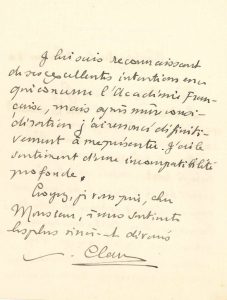 Je lui suis reconnaissant
de ses excellentes intentions en ce
qui concerne l'Académie Fran-
çaise, mais après mûre consi-
dération j'ai renoncé définiti-
vement à me présenter. J'ai le
sentiment d'une incompatibilité
profonde.
Croyez, je vous prie, cher
Monsieur, à mes sentiments
les plus